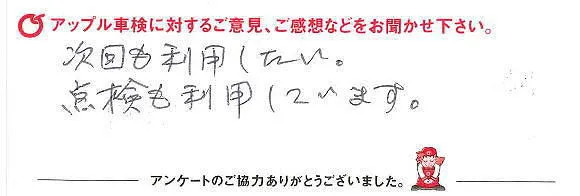 アップル車検に対するご意見、ご感想などをお聞かせ下さい。
次回も利用したい。
点検も利用しています。
アンケートのご協力ありがとうございました。